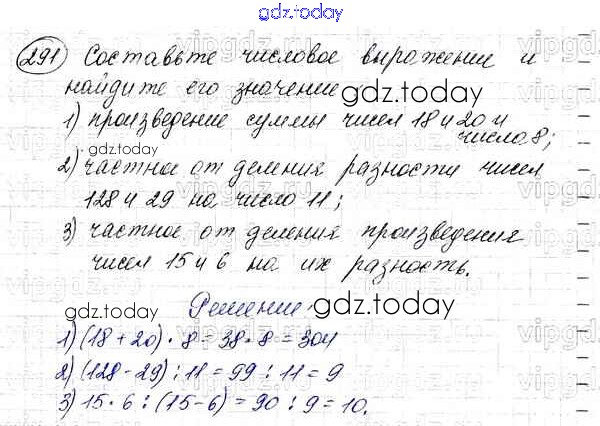 gdz.today
291 Составьте числовое выражении и
найдите его значение
gdz.today
1) произведение суммы чисел 18 и 20 и
числа 8;
gdz.today
2) частное от деления разности чисел
128 и 29 на число 11;
3) частное от деления произведения
чисел 15 и 6 на их разность.
gdz.today
gdz.today
Решение
1) (18 + 20) · 8 = 38 · 8 = 304
2) (128 - 29) : 11 = 99 : 11 = 9
3) 15 · 6 : (15 - 6) = 90 : 9 = 10.